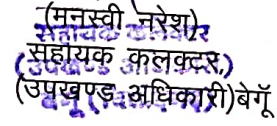 (मनस्वी नरेश)
सहायक कलक्टर,
(उपखण्ड अधिकारी) बेगूँ